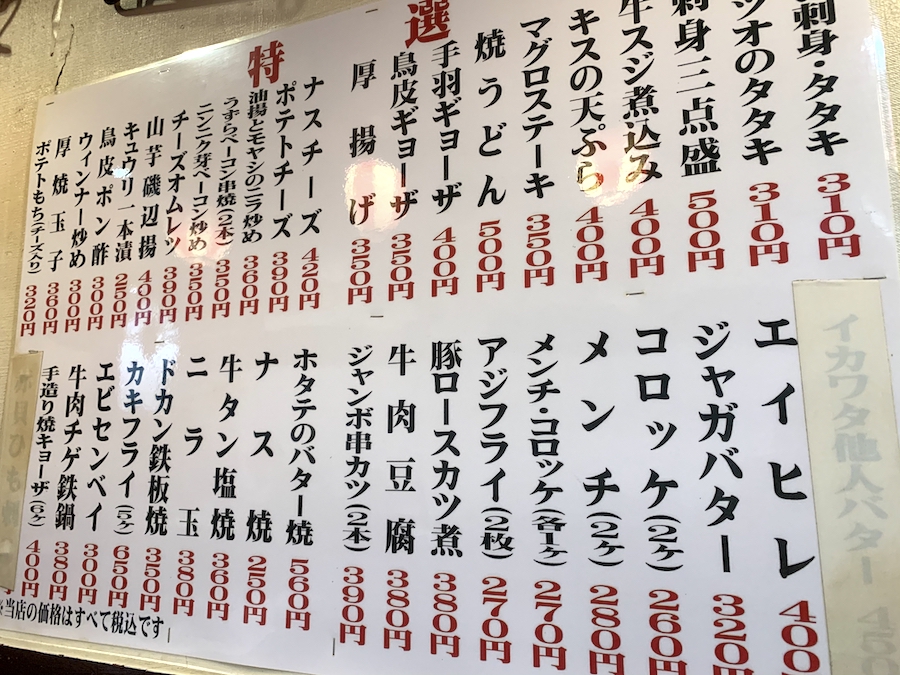 特選
刺身・タタキ 310円
ツオのタタキ 310円
刺身三点盛 500円
牛スジ煮込み 400円
キスの天ぷら 400円
マグロステーキ 350円
焼うどん 500円
手羽ギョーザ 400円
鳥皮ギョーザ 350円
厚揚げ 350円
ナスチーズ 420円
ポテトチーズ 390円
油揚とモヤシのニラ炒め 360円
うずらベーコン串焼(2本) 350円
ニンニク芽ベーコン炒め 350円
チーズオムレツ 390円
山芋磯辺揚 400円
キュウリ一本漬 250円
鳥皮ポン酢 300円
ウィンナー炒め 300円
厚焼玉子 360円
ポテトもち(チーズ入り) 320円
イカワタ他人バター 450
エイヒレ 400
ジャガバター 320円
コロッケ(2ヶ) 260円
メンチ(2ヶ) 280円
メンチ・コロッケ(各1ヶ) 270円
アジフライ(2枚) 270円
豚ロースカツ煮 380円
牛肉豆腐 380円
ジャンボ串カツ(2本) 390円
ホタテのバター焼 560円
ナス焼 250円
牛タン塩焼 360円
ニラ玉 380円
ドカン鉄板焼 350円
カキフライ(5ヶ) 650円
エビセンベイ 300円
牛肉チゲ鉄鍋 380円
手造り焼キョーザ(6ヶ) 400円
※当店の価格はすべて税込です